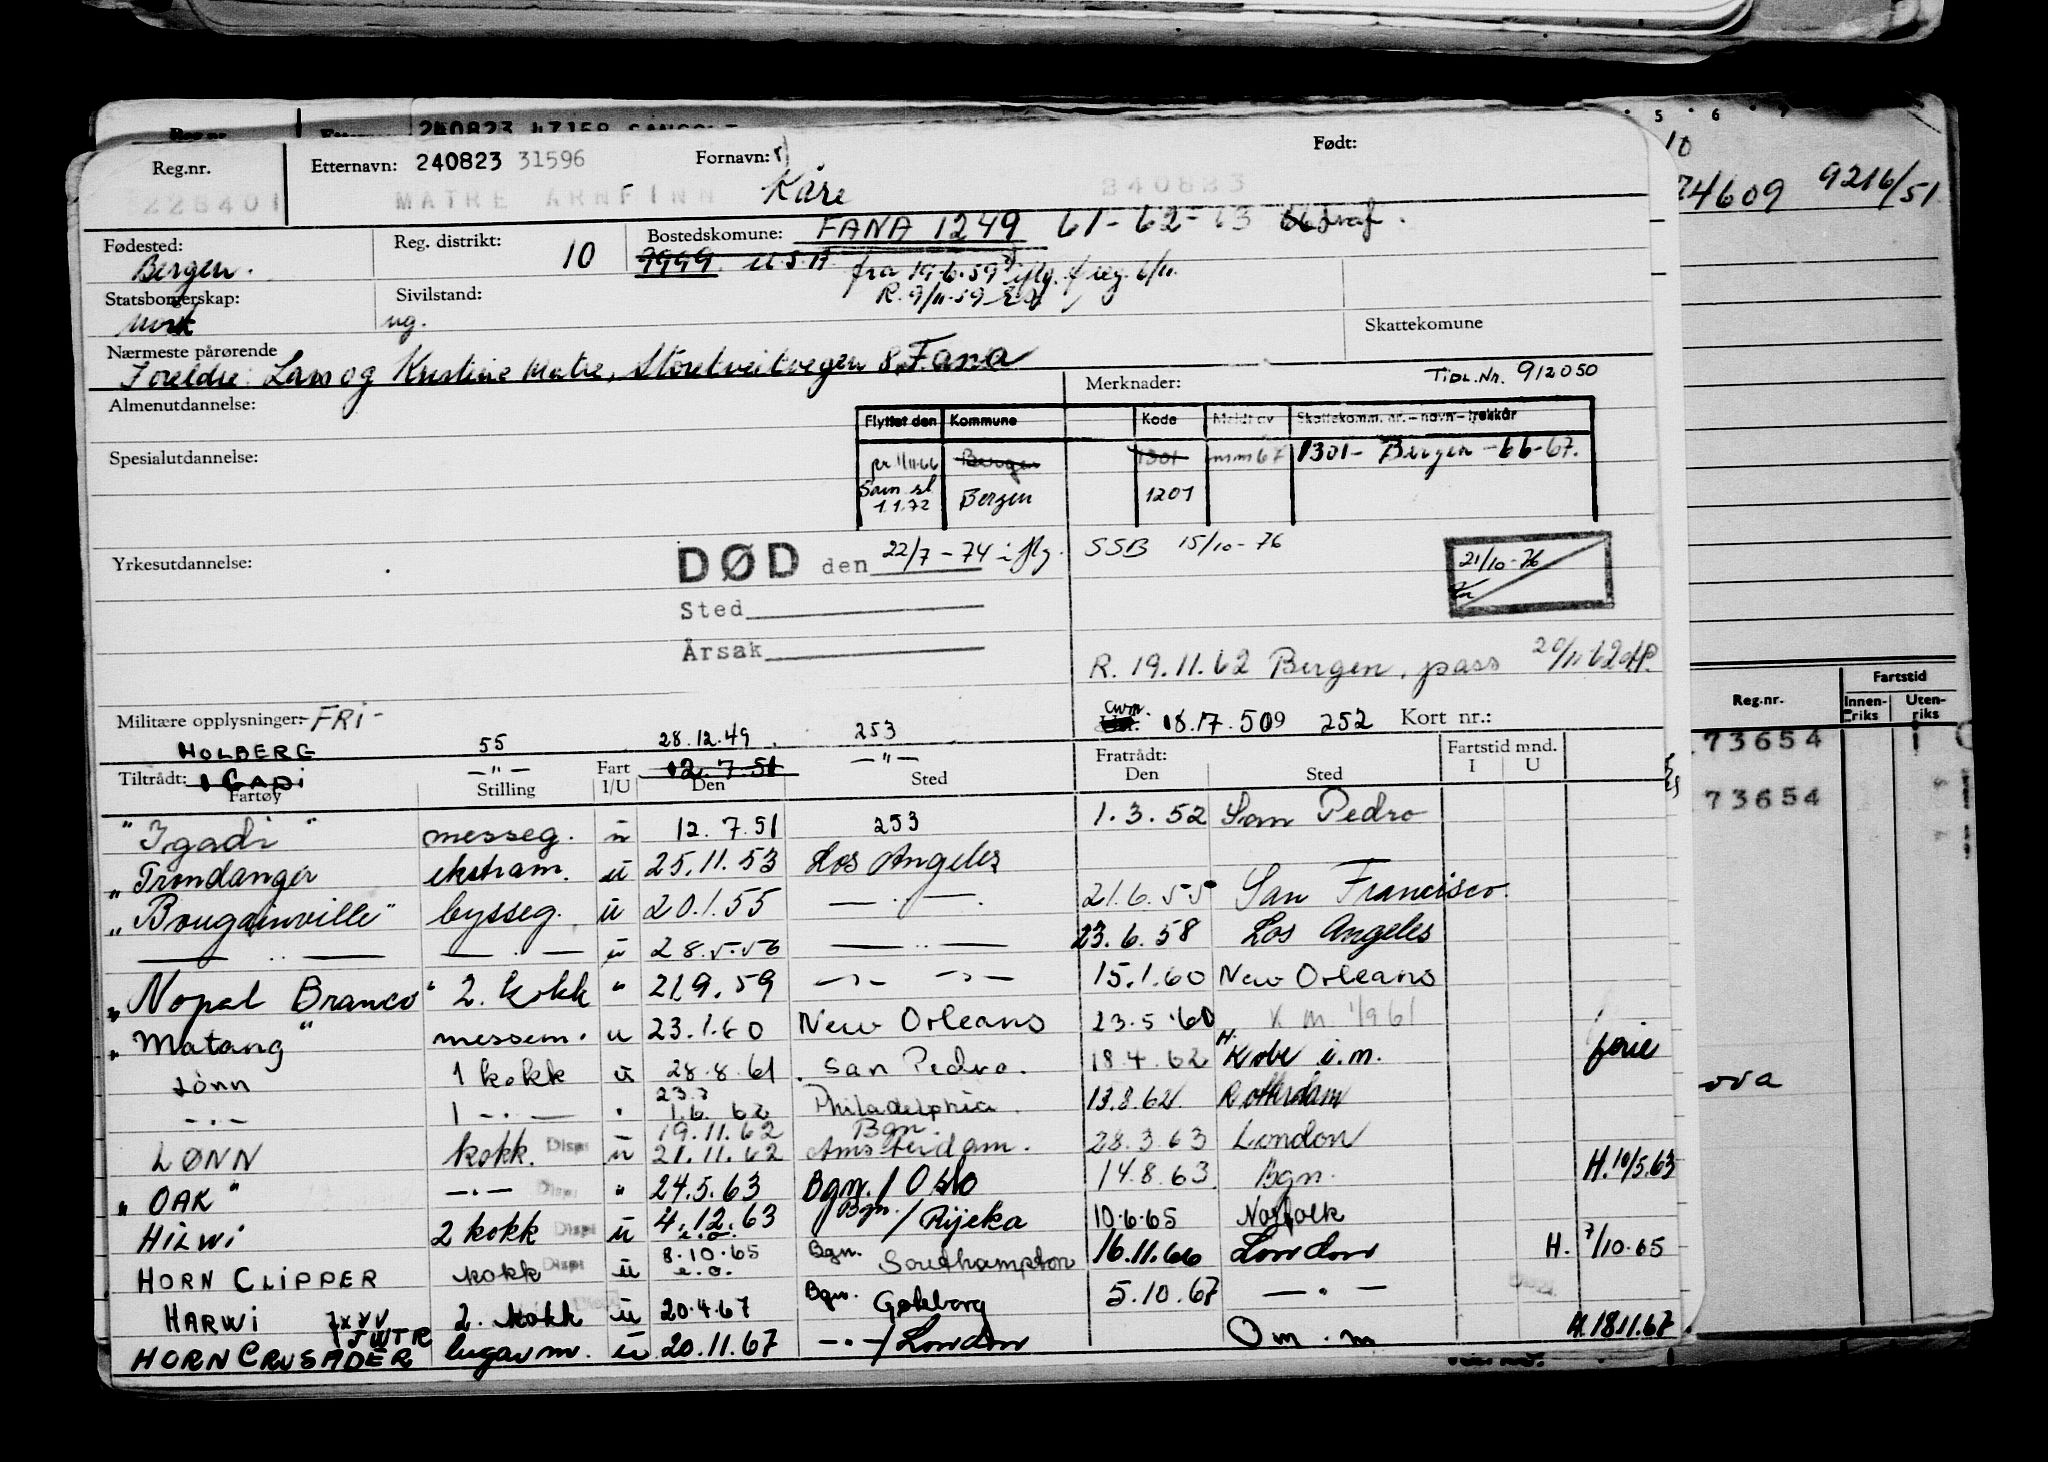 Reg.nr. Etternavn: 240823 31596 Fornavn: Født:
228401 MATRE ARNFINN Kåre 240823
5 6
10
74609 9216/51
Fødested: Bergen. Reg. distrikt: 10 Bostedskomune: FANA 1249 61-62-63
9999 U.S.A. fra 19.6.59 iflg. f reg. 6/11.
R. 9/11-59
Statsborgerskap: norsk Sivilstand: ug.
Skattekomune
Nærmeste pårørende
Foreldre: Lars og Kristine Matre, Storetveitvegen 8, Fana
Almenutdannelse: Merknader: TIDL.NR. 912050
Flyttet den Kommune Kode Meldt av Skattekomm. nr. – navn – trekkår
Spesialutdannelse: pr 1/11-66 Bergen 1301 mnm 67 1301- Bergen -66-67.
Som sl 1.1.72 Bergen 1201
Yrkesutdannelse: DØD den 22/7-74 iflg. SSB 15/10-76
21/10-76
Sted
Årsak
R. 19.11.62 Bergen, pass 20/11 62
Militære opplysninger: -FRI-
18.17.509 252 Kort nr.:
HOLBERG 55 28.12.49. 253
Tiltrådt: IGADI -"- 12.7.51 -"-
Fartøy Stilling Fart I/U Den Sted Fratrådt: Den Sted Fartstid mnd. I U
"Igadi" messeg. u 12.7.51 253 1.3.52 San Pedro
"Trondanger ekstram. u 25.11.53 Los Angeles
"Bougainville" bysseg. u 20.1.55 —..— 21.6.55 San Francisco.
—..— —.— u 28.5.56 —..— 23.6.58 Los Angeles
"Nopal Branco" 2. kokk " 21.9.59 -"- -"- 15.1.60 New Orleans
"Matang" messem. u 23.1.60 New Orleans 23.5.60 1961
Lönn 1 kokk u 28.8.61 San Pedro. 18.4.62 H. Kobe i.m. ferie
-.- 1 -.- " 1.6.62 Philadelphia. 13.8.62 Rotterdam
19.11.62 Bgn.
LØNN kokk. Disp u 21.11.62 Amsterdam. 28.3.63 London
"OAK" -.- Disp " 24.5.63 Bgn./Oslo 14.8.63 Bgn. H. 10/5.63
HILWI 2 kokk Disp u 4.12.63 Bgn./Rijeka 10.6.65 Norfolk
e.o.
HORN CLIPPER kokk Disp u 8.10.65 Bgn. Southampton 16.11.66 London H. 7/10.65
e.o.
HARWI 2. kokk u 20.4.67 Bgn. Gøteborg 5.10.67 —"—
JWTR
HORN CRUSADER lugarm. u 20.11.67 -.-/London O m.m H.18.11.67
Reg.nr. Fartstid
Innen-riks Uten-riks
73654
73654